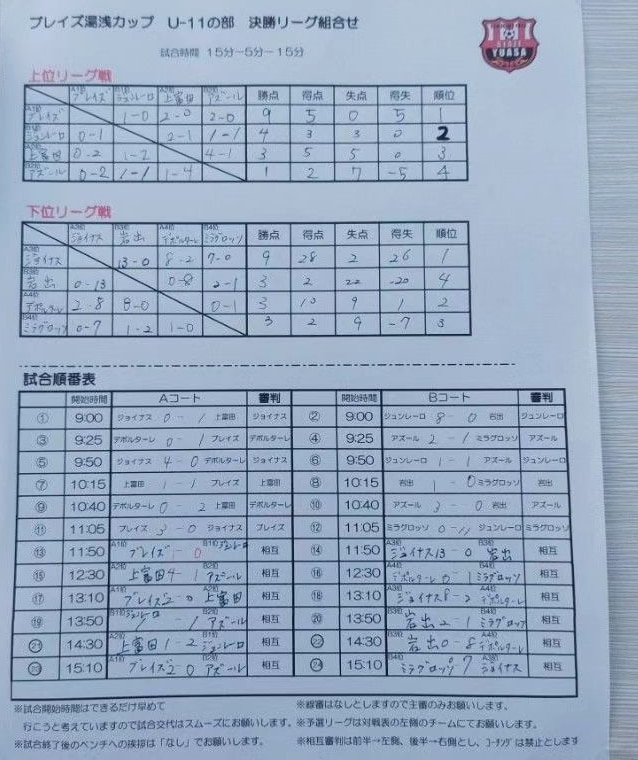 プレイズ湯浅カップ U-11の部 決勝リーグ組合せ
試合時間 15分-5分-15分
YUASA
上位リーグ戦
A1位 プレイズ B1位 ジュンレーロ A2位 上富田 B2位 アズール 勝点 得点 失点 得失 順位
A1位 プレイズ 1-0 2-0 2-0 9 5 0 5 1
B1位 ジュンレーロ 0-1 2-1 1-1 4 3 3 0 2
A2位 上富田 0-2 1-2 4-1 3 5 5 0 3
B2位 アズール 0-2 1-1 1-4 1 2 7 -5 4
下位リーグ戦
A3位 ジョイナス B3位 岩出 A4位 デポルターレ B4位 ミラグロッソ 勝点 得点 失点 得失 順位
A3位 ジョイナス 13-0 8-2 7-0 9 28 2 26 1
B3位 岩出 0-13 0-8 2-1 3 2 22 -20 4
A4位 デポルターレ 2-8 8-0 0-1 3 10 9 1 2
B4位 ミラグロッソ 0-7 1-2 1-0 3 2 9 -7 3
試合順番表
開始時間 Aコート 審判 開始時間 Bコート 審判
① 9:00 ジョイナス 0-1 上富田 ジョイナス ② 9:00 ジュンレーロ 8-0 岩出 ジュンレーロ
③ 9:25 デポルターレ 0-1 プレイズ デポルターレ ④ 9:25 アズール 2-1 ミラグロッソ アズール
⑤ 9:50 ジョイナス 4-0 デポルターレ ジョイナス ⑥ 9:50 ジュンレーロ 1-1 アズール ジュンレーロ
⑦ 10:15 プレイズ 1-1 上富田 プレイズ ⑧ 10:15 岩出 1-0 ミラグロッソ 岩出
⑨ 10:40 デポルターレ 0-2 上富田 デポルターレ ⑩ 10:40 アズール 3-0 岩出 アズール
⑪ 11:05 プレイズ 3-0 ジョイナス プレイズ ⑫ 11:05 ミラグロッソ 0-11 ジュンレーロ ミラグロッソ
⑬ 11:50 A1位 プレイズ 1-0 B1位 ジュンレーロ 相互 ⑭ 11:50 A3位 ジョイナス 13-0 B3位 岩出 相互
⑮ 12:30 A2位 上富田 4-1 B2位 アズール 相互 ⑯ 12:30 A4位 デポルターレ 0-1 B4位 ミラグロッソ 相互
⑰ 13:10 A1位 プレイズ 2-0 A2位 上富田 相互 ⑱ 13:10 A3位 ジョイナス 8-2 A4位 デポルターレ 相互
⑲ 13:50 B1位 ジュンレーロ 1-1 B2位 アズール 相互 ⑳ 13:50 B3位 岩出 2-1 B4位 ミラグロッソ 相互
㉑ 14:30 A2位 上富田 1-2 B1位 ジュンレーロ 相互 ㉒ 14:30 B3位 岩出 0-8 A4位 デポルターレ 相互
㉓ 15:10 A1位 プレイズ 2-0 B2位 アズール 相互 ㉔ 15:10 B4位 ミラグロッソ 0-7 A3位 ジョイナス 相互
※試合開始時間はできるだけ早めて ※線審はなしとしますので主審のみお願いします。
行こうと考えていますので試合交代はスムーズにお願いします。 ※予選リーグは対戦表の左側のチームにてお願いします。
※試合終了後のベンチへの挨拶は「なし」でお願いします。 ※相互審判は前半→左側、後半→右側とし、コーチングは禁止とします